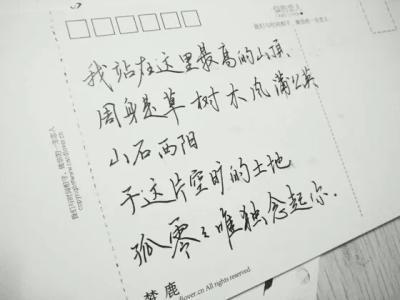 我站在这里最高的山顶、
周身是草 树 木 风 蒲公英
山石西阳
于这片空旷的土地
孤零々唯独念起你.
flover.cn All rights reserved.